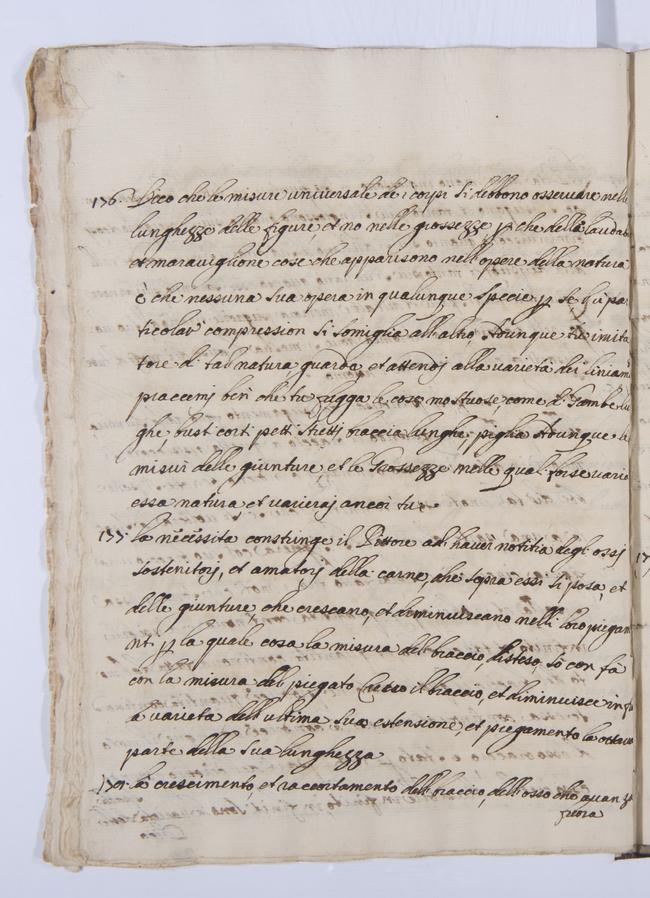 176. Dico che le misure universale de i corpi si debbono osservare nelle
lunghezze delle figure, et no nelle grossezze, p che della laudab
et maravigliose cose che apparisono nell'opere della natura
è che nessuna sua opera in qualunque specie p se di par
ticolar compression si somiglia all'altro Adunque tu imita
tore di tal natura guarda, et attendj alla varietà dei liniam
piaccemj ben che tu fugga le cose mostuose, come di Gambe lu
ghe busti corti petti stretti, braccia lunghe, piglia Adunque le
misure delle giunture, et le Grossezze nelle quali forse varie
essa natura et varieraj ancor tu.
177. la necessita constringe il Pittore ad haver notitia degl ossj
sostenitorj, et armatorj della carne, che sopra essi si posa, et
delle giunture, che crescano, et diminuiscano nelli loro piegam
nti, p la quale cosa la misura del braccio disteso, no con fà
con la misura del piegato Cresce il braccio, et diminuisce in fr
a varieta dell'ultima sua estensione, et piegamento la ottava
parte della sua lunghezza
la crescimento, et racortamento dell braccio, dell'osso che avanz
fuora